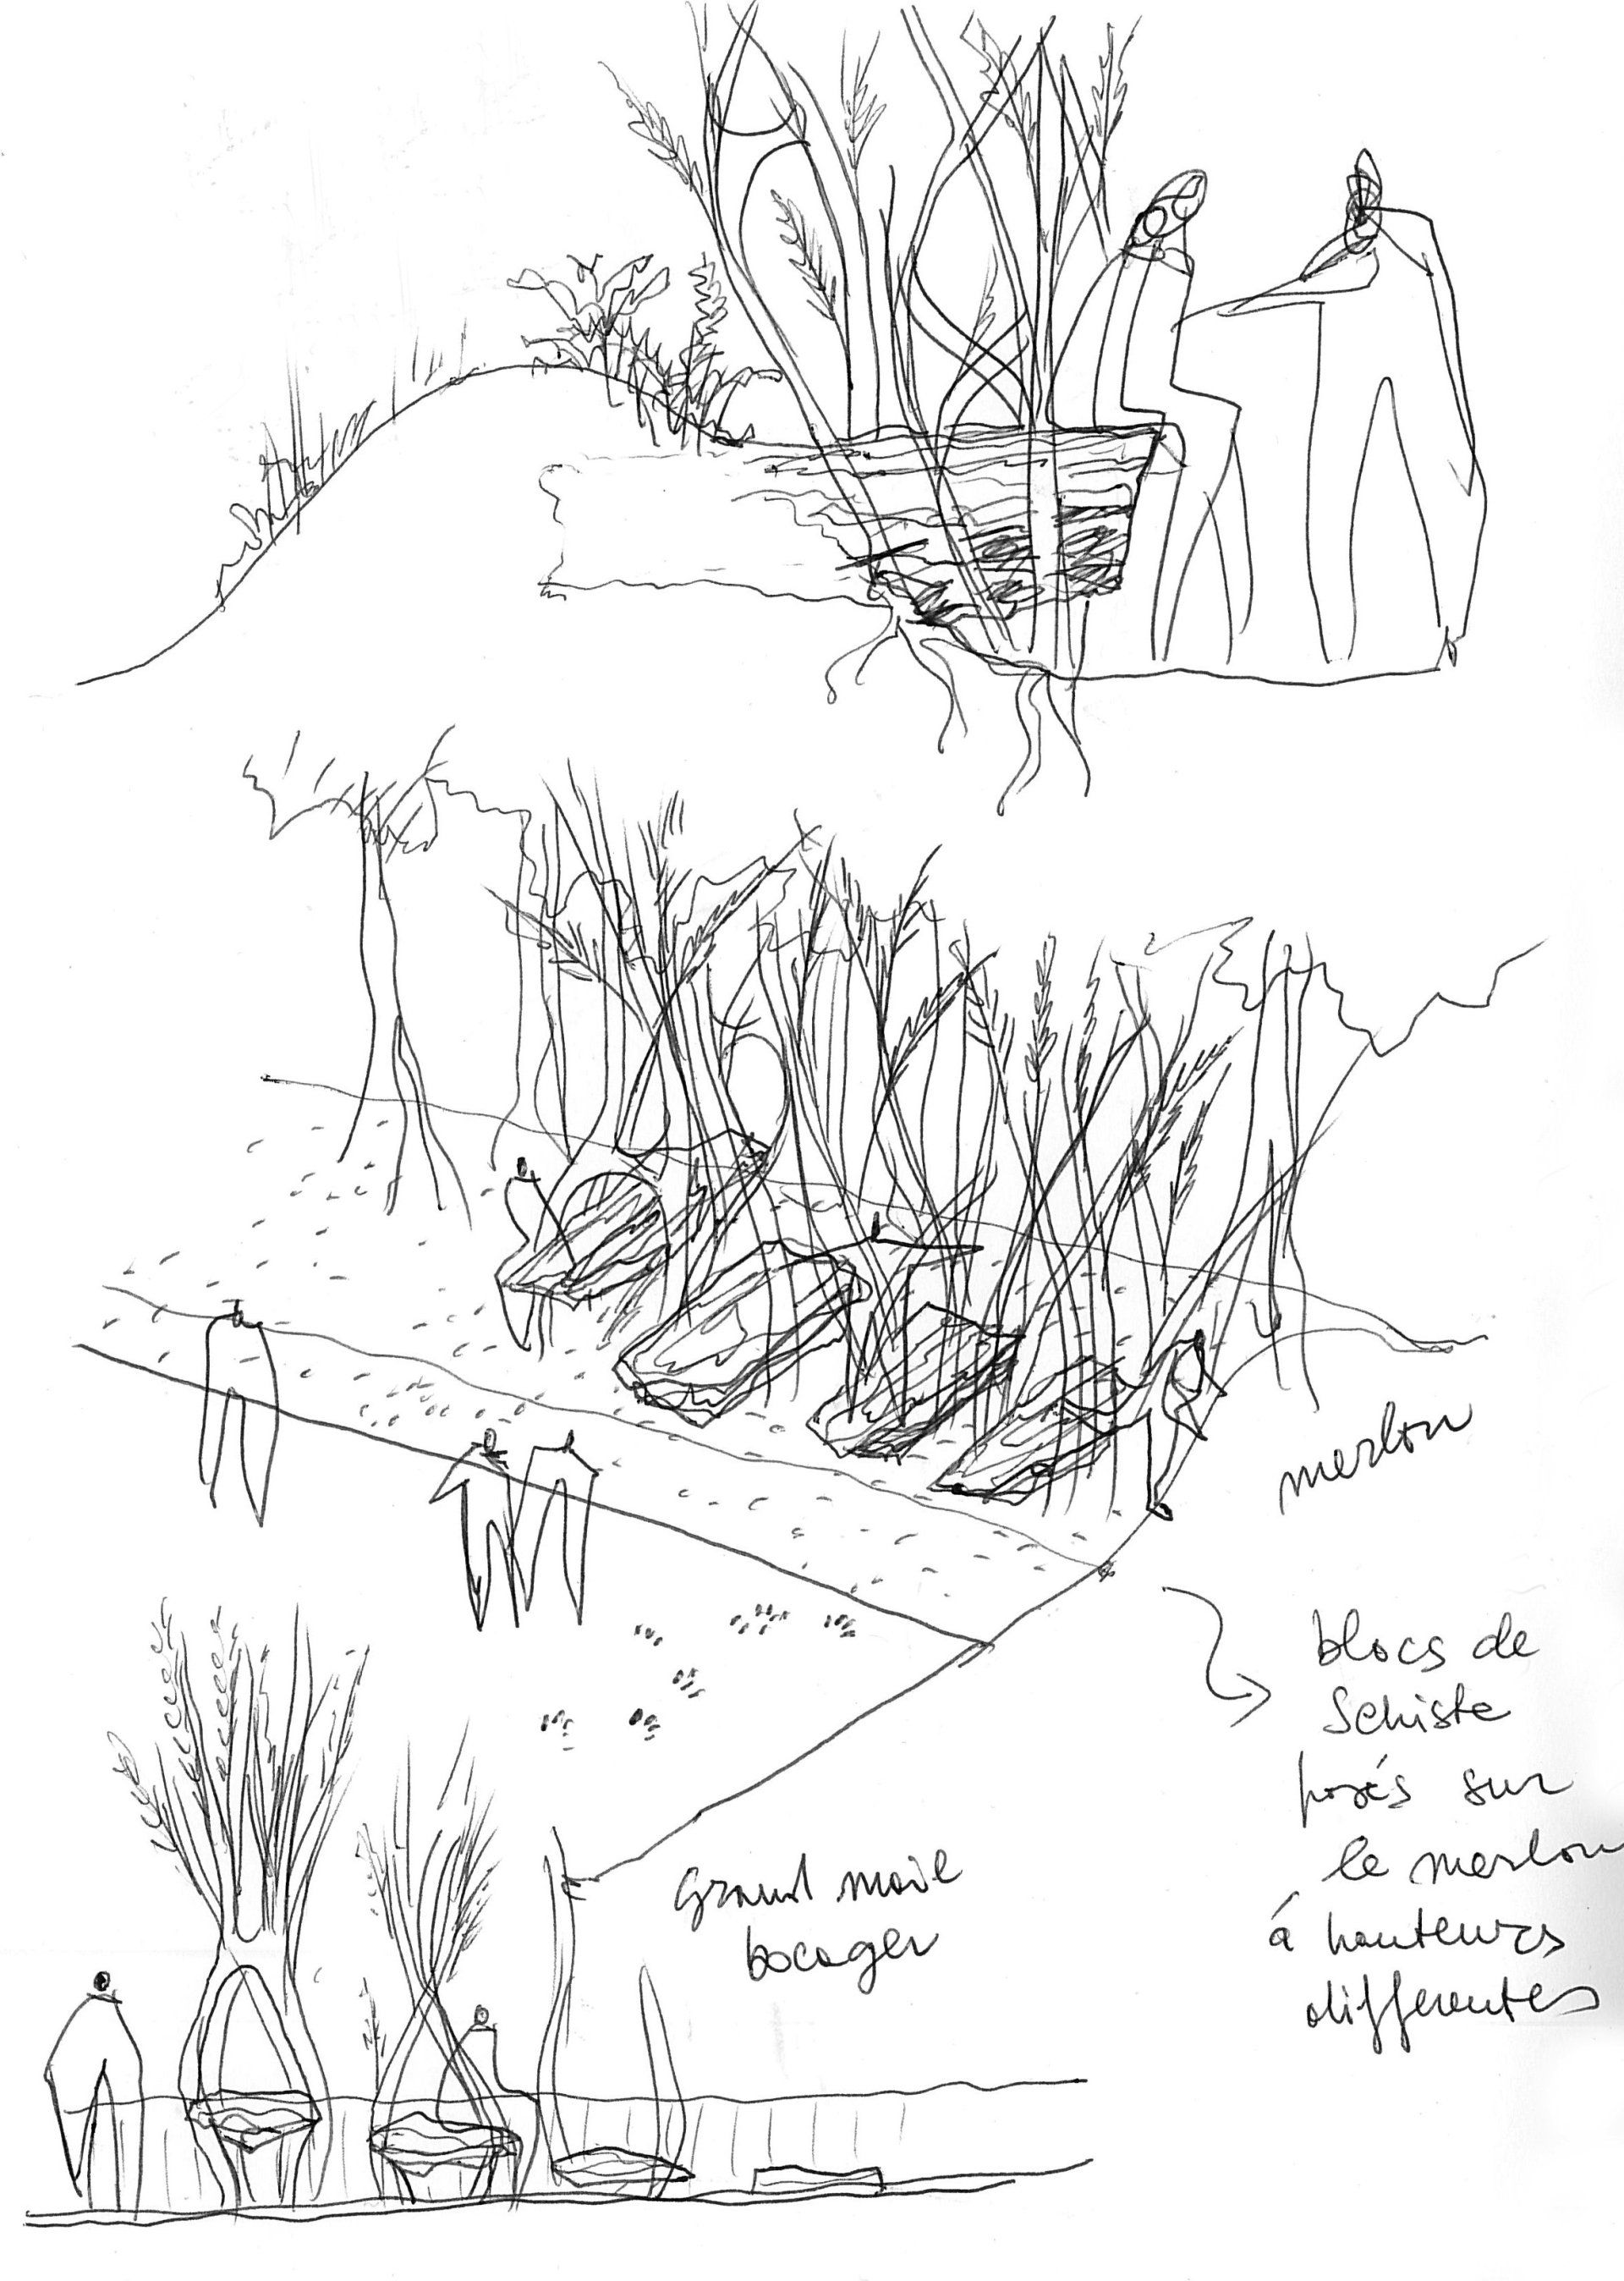 merlon
blocs de
Schiste
posés sur
le merlon
á hauteurs
differentes
Grand mail
bocager